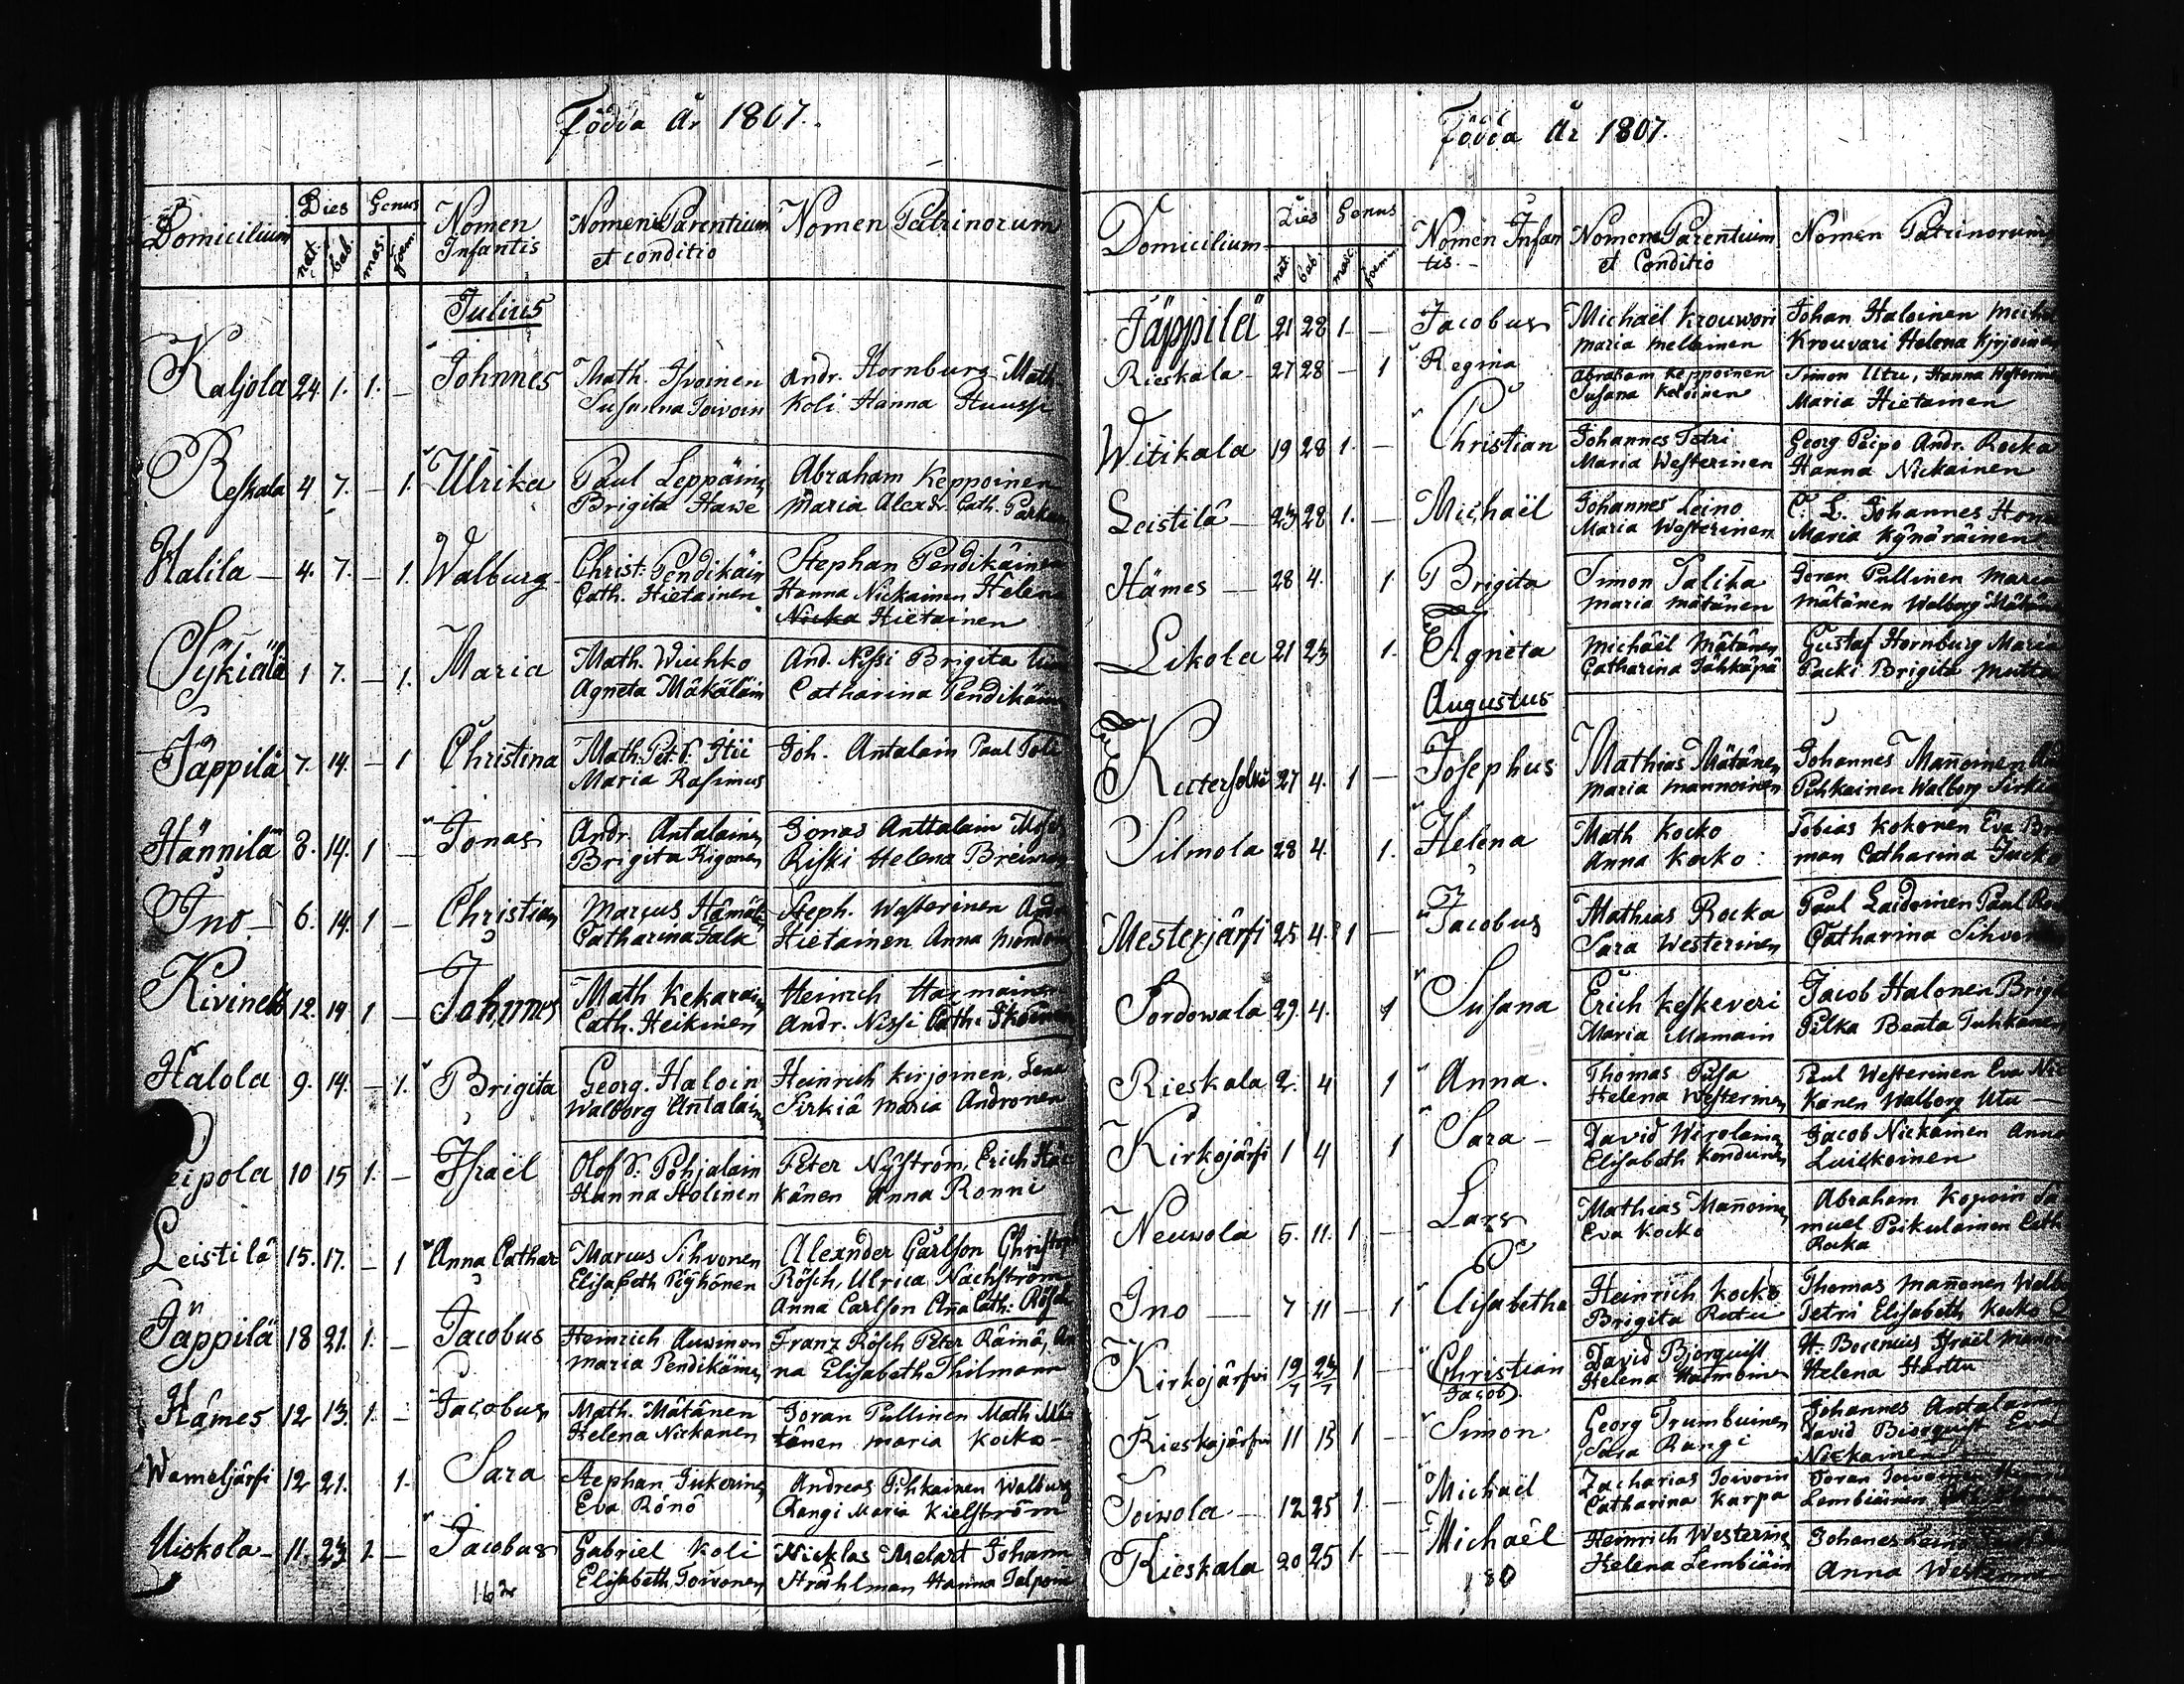 Födda År 1807.
Domicilium Dies nat. bab. Genus mas. foem. Nomen Infantis Nomen Parentium et conditio Nomen Patrinorum
Julius
Kaljola 24. 1. 1. – Johnnes Math. Ihvoinen Andr. Hornburg Math.
Susanna Toivoin Koli Hanna Huussi
Reskala 4 7. – 1. Ulrika Paul Leppäin Abraham Keppoinen
Brigita Hawe Maria Alexdr. Cath. Parkan
Halila – 4. 7. – 1. Walburg Christ. Pendikäin Stephan Pendikäinen
Cath. Hietainen Hanna Nickainen Helena
Hietainen
Sykiälä 1 7. – 1. Maria Math. Wiuhko And. Nissi Brigita
Agneta Mäkäläin Catharina Pendikäin
Jäppilä 7. 14. – 1 Christina Math. Pet. S. Itii Joh. Antalain Paul
Maria Rasimus
Hännilä 8. 14. 1 – Jonas Andr. Antalainen Jonas Anttalain
Brigita Rigonen Riski Helena
Ino – 6. 14. 1 – Christian Marcus Hämäl Steph. Westerinen Andr
Catharina Jala Hietainen Anna
Kivineb 12. 14. 1 – Johnnes Math Kekarain Heinrich
Cath. Heikinen Andr. Nissi Cath.
Halola 9. 14. – 1. Brigita Georg. Haloin Heinrich Kirjoinen, Lena
Walborg Antalain Sirkiä Maria Andronen
eipola 10 15 1. – Israël Olof S. Pohjalain Peter Nyström, Erich Häc
Hanna Holinen känen Anna Ronni
Leistilä 15. 17. – 1 Anna Cathar Marcus Sihvonen Alexander Carlson Christoph
Elisabeth Pöyhönen Rösch, Ulrica Nachström
Anna Carlson Aña Cath: Rösch
Jäppilä 18 21. 1. – Jacobus Heinrich Auvinen Franz Rösch Peter Räinä, An
Maria Pendikäinen na Elisabeth Thilmann
Hämes 12 13. 1. – Jacobus Math. Mätänen Joran Pullinen Math Mä
Helena Nickanen tänen Maria Kocko –
Wameljärfi 12 21. 1. Sara Stephan Tukeinen Andreas Pihkainen Walburg
Eva Rönö Rangi Maria Kielström
Uiskola – 11. 23. 1. – Jacobus Gabriel Koli Nicklas Melart Johann
Elisabeth Toivonen Strählman Hanna Talpoin
162
Födda År 1807.
Domicilium Dies nat. bab. Genus masc. foemin. Nomen Infan
tis. Nomen Parentium et Conditio Nomen Patrinorum
Jäppilä 21 28 1. – Jacobus Michaël Krouwori Johan Haloinen Mich
Maria Mellainen Krouvari Helena Kirjoinen
Rieskala – 27 28 – 1 Regina Abraham Keppoinen Simon Utu, Hanna
Susana Keloinen Maria Hietainen
Witikala 19 28 1. – Christian Johannes Petri Georg Peipo Andr. Rocka
Maria Westerinen Hanna Nickainen
Leistilä – 23 28 1. – Michaël Johannes Leino C. L. Johannes
Maria Westerinen Maria Kynäräinen
Hämes – 28 4. 1. Brigita Simon Talika Joran Pullinen Maria
Maria Mätänen Mätänen Walborg Mätän
Likola 21 23 1. Agneta Michäel Mätänen Gustaf Hornburg Maria
Catharina Jähkäpä Packi Brigita Mutta
Augustus
Kuterselkä 27 4. 1 – Josephus Mathias Mätänen Johannes Mañoinen
Maria Mannoinen Pihkainen Walborg Sirkiä
Silmola 28 4. 1. Helena Math Kocko Tobias Kokonen Eva Br
Anna Kocko man Catharina Jucko
Mesterjärfi 25 4. 1 – Jacobus Mathias Rocka Paul Laidoinen Paul
Sara Westerinen Catharina Sihvon
Pordowala 29. 4. 1 Susana Erich Keskeveri Jacob Halonen Brigi
Maria Mamain Pilka Beata Tuhkanen
Rieskala 2. 4 1 Anna. Thomas Pusa Paul Westerinen Eva Nic
Helena Westerinen kanen Walborg Utu –
Kirkojärfi 1 4 1 Sara – David Wirolainen Jacob Nickainen Anna
Elisabeth Konduinen Luickoinen
Neuwola 5. 11. 1 – Lars Mathias Mañoinen Abraham Kopioin Sa
Eva Kocko muel Poikulainen Cath
Rocka
Ino – 7 11 – 1 Elisabetha Heinrich Kocko Thomas Mañonen Walb
Brigita Rutu Petri Elisabeth Kocko
Kirkojärfvi 19/7 23/7 1 – Christian Jacob David Bjorquist H. Borenius Israël
Helena Haimbinen Helena Harttu
Rieskajärfvi 11 13 1 – Simon Georg Trumbuinen Johannes Antalain
Sara Rangi David Biorquist Eva
Nickainen
Toiwola – 12 25 1. – Michaël Zacharias Toivoin Joran
Catharina Karpa Lembiäinen
Rieskala 20 25 1. – Michaël Heinrich Westerinen Johanes Leino
Helena Lembiäin Anna Westerinen
180